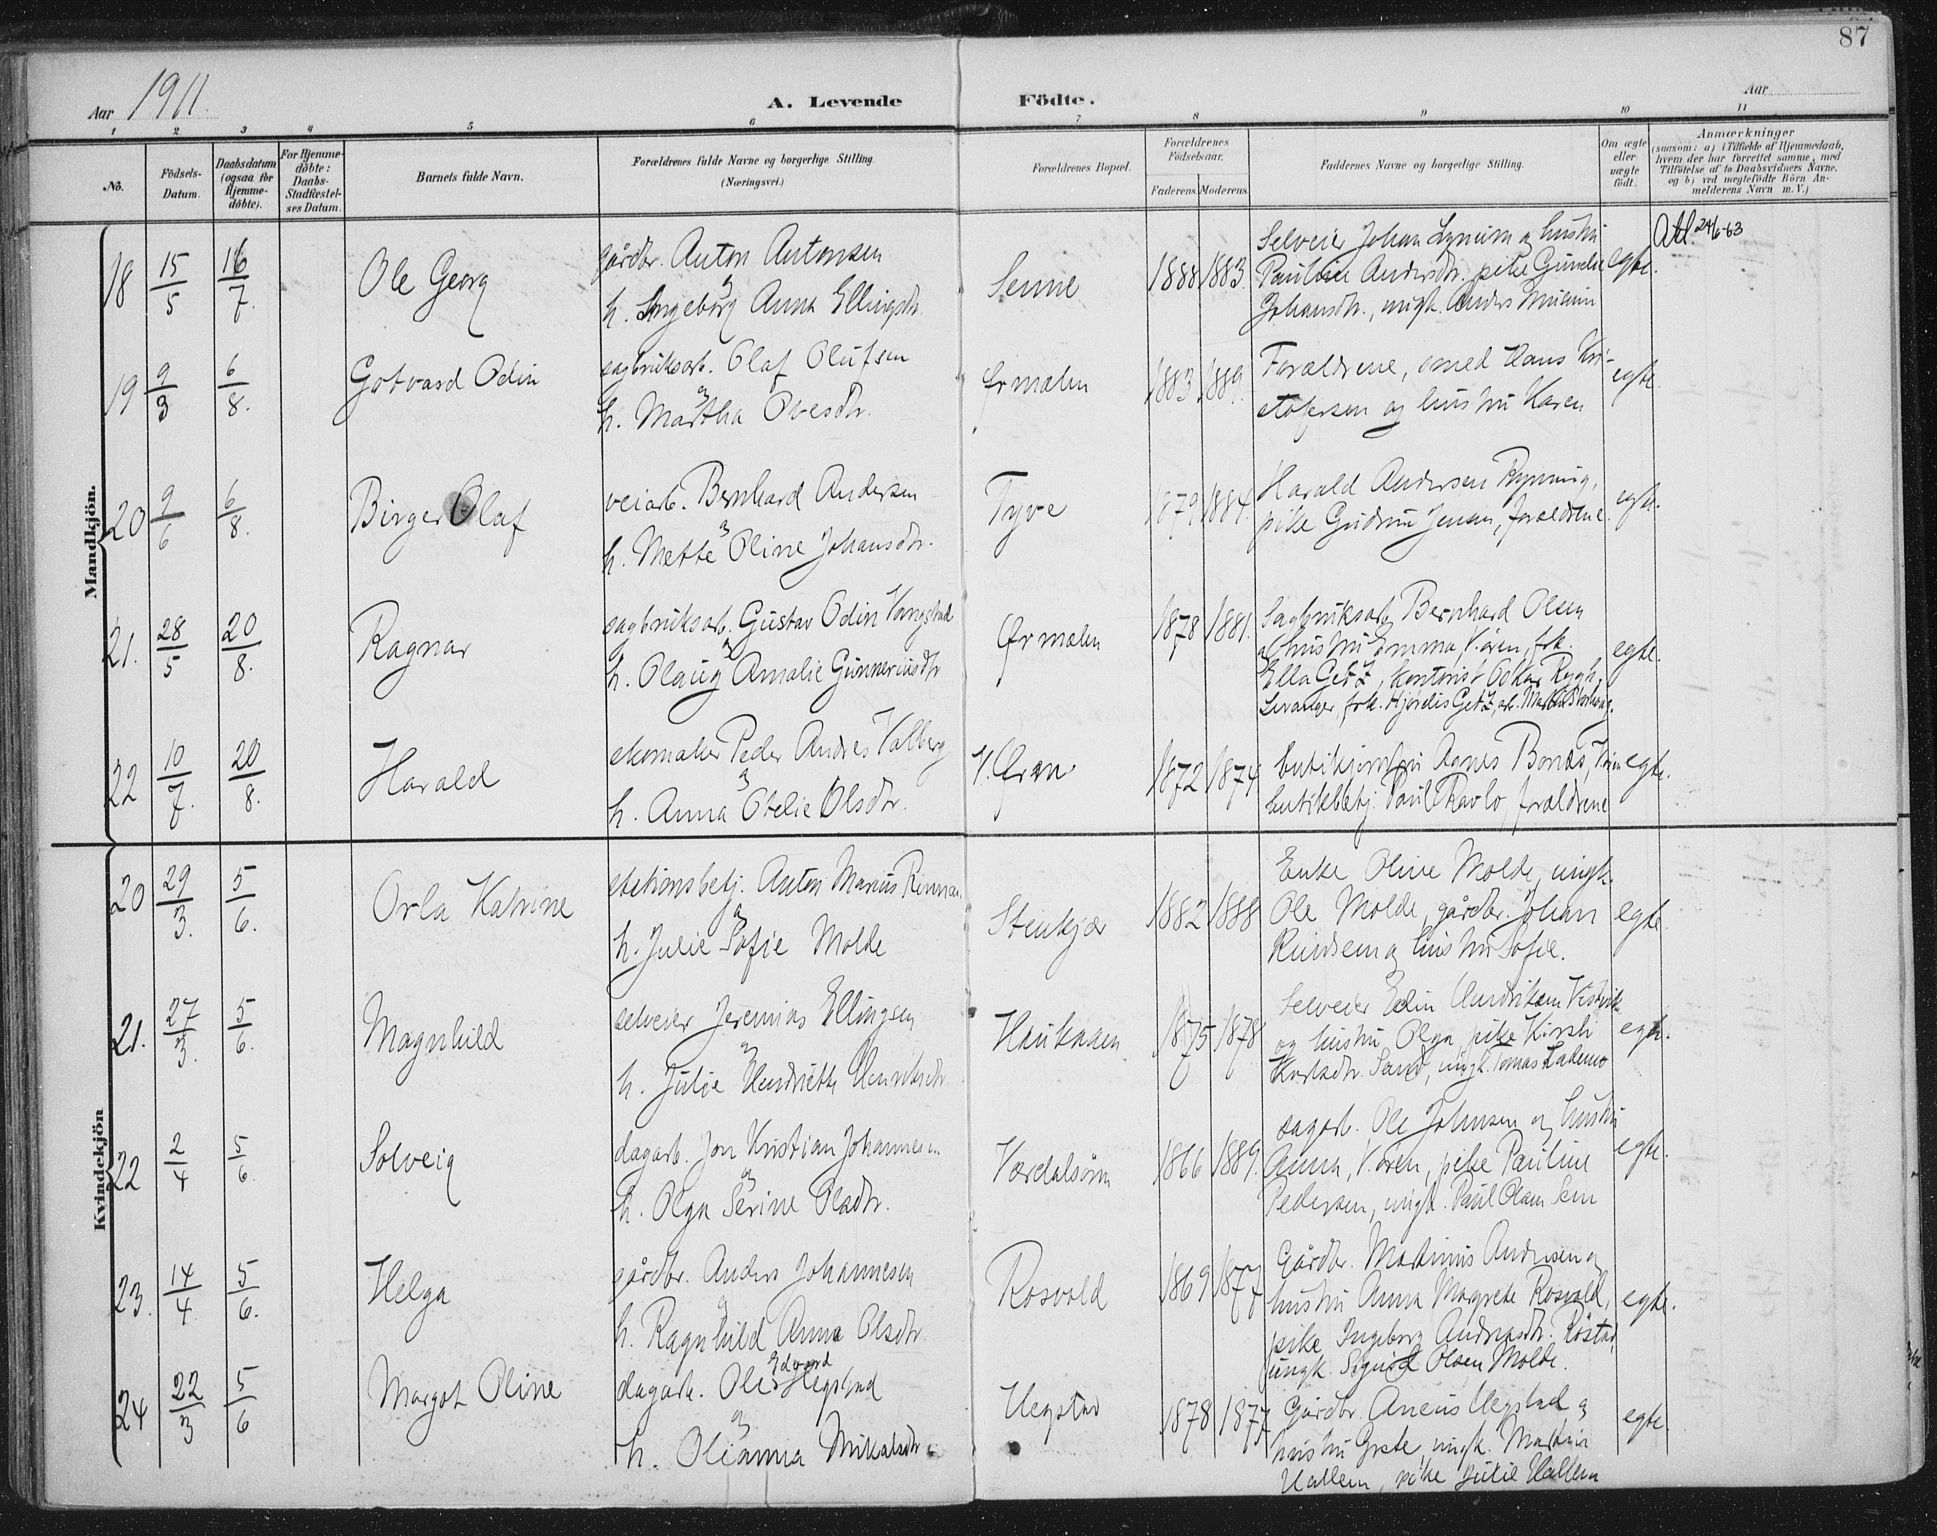 87
Aar 1911.
A. Levende Födte.
Aar
1 2 3 4 5 6 7 8 9 10 11
No.
Födsels-
Datum.
Daabsdatum
(ogsaa for
Hjemme-
döbte).
For Hjemme-
döbte:
Daabs-
Stadfæstel-
ses Datum.
Barnets fulde Navn.
Forældrenes fulde Navne og borgerlige Stilling
(Næringsvei.)
Forældrenes Bopæl.
Forældrenes
Födselsaar.
Faderens. Moderens.
Faddernes Navne og borgerlige Stilling.
Om ægte
eller
uægte
födt.
Anmærkninger
(saasom: a) i Tilfælde af Hjemmedaab,
hvem der har forrettet samme, med
Tilföielse af to Daabsvidners Navne,
og b) ved uægtefödte Börn An-
melderens Navn m. V.)
Mandkjön.
18 15/5 16/7. Ole Georg
gårdbr. Anton Antonsen
h. Ingeborg Anna Ellingsdtr.
Senne 1888 1883.
Selveier Johan Lynum og hustru
Pauline Andersdr. pike
Johansdtr., ungk. Anders
egte.
Att. 24/6-63
19 9/3 6/8. Gotvard Odin
sagbruksarb. Olaf Olufsen
h. Martha Ovesdtr.
Ørmelen 1883. 1889.
Forældrene, smed Hans Kri-
stofersen og hustru Karen
egte.
20 9/6 6/8. Birger Olaf
veiarb. Bernhard Andersen
h. Mette Oline Johansdtr.
Tyve 1879. 1884.
Harald Andersen Ryning,
pike Gudrun Jensen, forældrene.
egte.
21. 28/5 20/8. Ragnar
sagbruksarb. Gustav Odin Vongstad
h. Olaug Amalie Gunneriusdtr
Ørmelen 1878 1881.
Sagbruksarb. Bernhard Olsen
og hustru Emma, V.øren, frk.
Ella Getz, kontorist Oskar Rygh,
Levanger, frk. Hjørdis Getz, arb.
egte.
22 10/7. 20/8. Harald
skomaker Peder Andres Valberg
h. Anna Otelie Olsdtr.
V. Øren 1872 1874
butikjomfru Agnes Bonæs,
butikbetj. Paul Ravlo, forældrene
egte.
Kvindekjön
20 29/3. 5/6. Orla Katrine
stationsbetj. Anton Marius
h. Julie Sofie Molde
Stenkjær 1882 1888
Enke Oline Molde, ungk.
Ole Molde, gårdbr. Johan
og hustru Sofie.
egte.
21. 27/3. 5/6. Magnhild
selveier Jeremias Ellingsen
h. Julie Hendriette Henriksdtr.
Haukaaen 1875 1878
Selveier Edin
og hustru Olga, pike Kirsti
Karlsdtr. Sand, ungk. Tomas Lademo
egte.
22 2/4 5/6. Solveig
dagarb. Jon Kristian Johannesen
h. Olga Serine Olsdtr.
Værdalsøren 1866 1889.
sagarb. Ole Johnsen og hustru
Anna, V.øren, pike Pauline
Pedersen, ungk. Paul Olsen Sem
egte.
23. 14/4. 5/6. Helga
gårdbr. Anders Johannesen
h. Ragnhild Anna Olsdtr.
Rosvold 1869 1877
Gårdbr. Martinus Andersen og
hustru Anna Margrete Rosvold,
pike Ingeborg Andreasdtr. Röstad,
ungk. Sigurd Olsen Molde.
egte.
24 22/3 5/6 Margot Oline
dagarb. Ole Edvard Hegstad
h. Olianna Mikalsdtr.
Hegstad 1878 1877
Gårdbr. Aneus Hegstad og
hustru Grete, ungk. Martin
Hallem, pike Julie Hallem
egte.